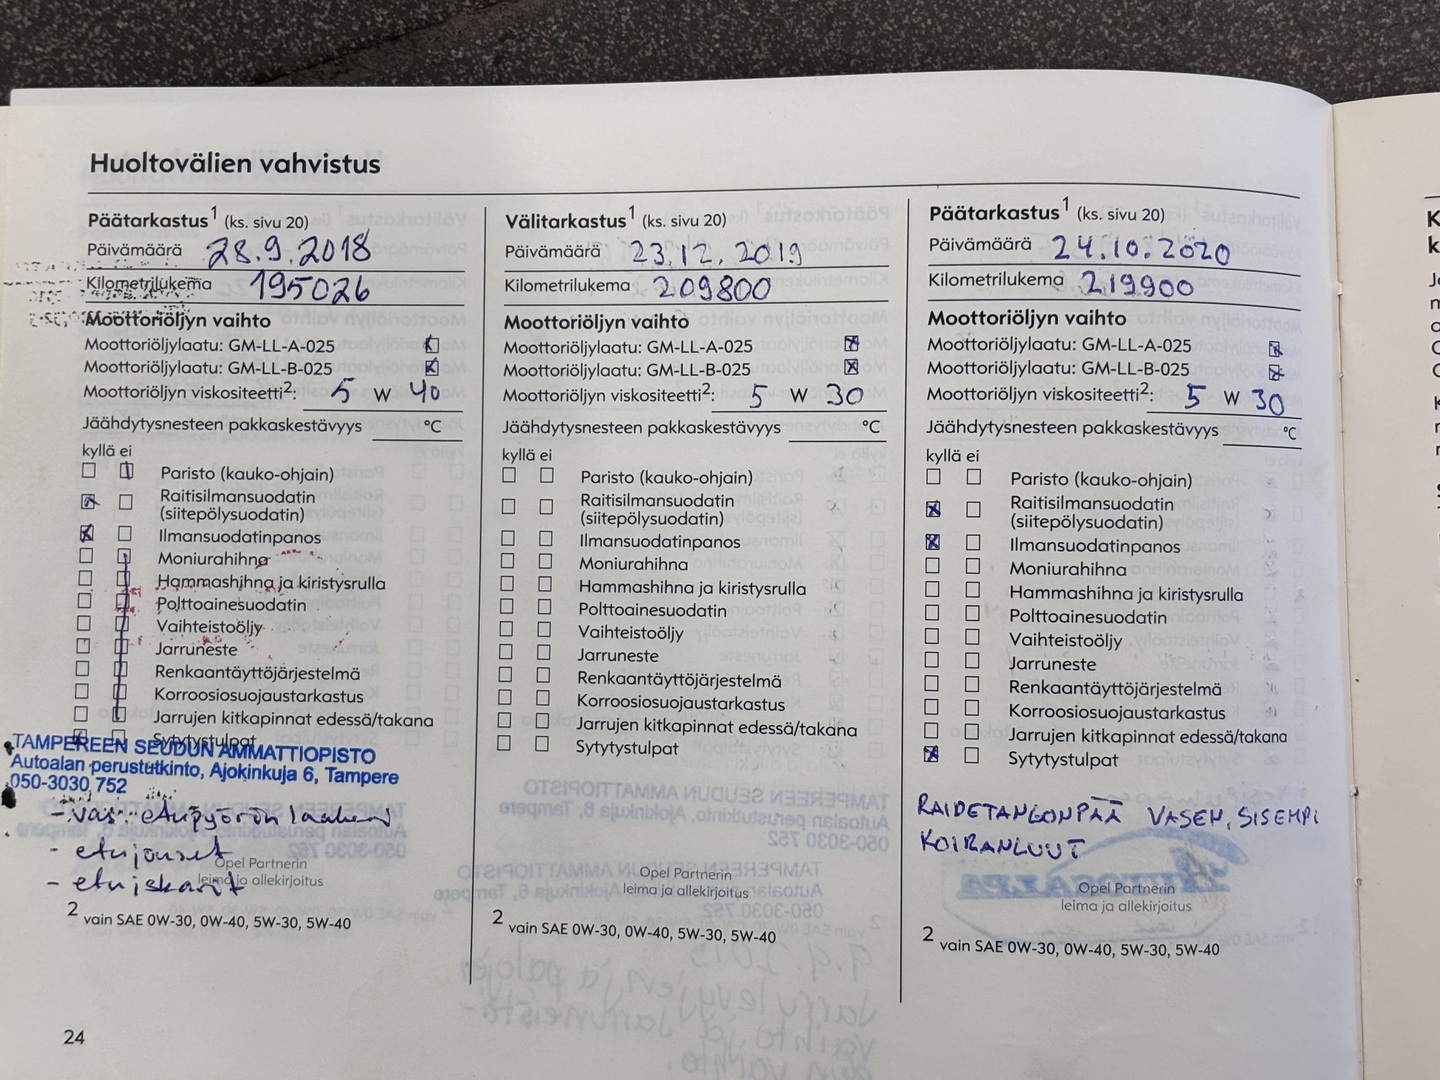 Huoltovälien vahvistus
Päätarkastus¹ (ks. sivu 20)
Päivämäärä 28.9.2018
Kilometrilukema 195026
Moottoriöljyn vaihto
Moottoriöljylaatu: GM-LL-A-025
Moottoriöljylaatu: GM-LL-B-025
Moottoriöljyn viskositeetti²: 5 W 40
Jäähdytysnesteen pakkaskestävyys °C
kyllä ei
Paristo (kauko-ohjain)
Raitisilmansuodatin
(siitepölysuodatin)
Ilmansuodatinpanos
Moniurahihna
Hammashihna ja kiristysrulla
Polttoainesuodatin
Vaihteistoöljy
Jarruneste
Renkaantäyttöjärjestelmä
Korroosiosuojaustarkastus
Jarrujen kitkapinnat edessä/takana
Sytytystulpat
TAMPEREEN SEUDUN AMMATTIOPISTO
Autoalan perustutkinto, Ajokinkuja 6, Tampere
050-3030 752
- vas. etupyörän laakeri
- etujouset
- etuiskarit
Opel Partnerin
leima ja allekirjoitus
² vain SAE 0W-30, 0W-40, 5W-30, 5W-40
Välitarkastus¹ (ks. sivu 20)
Päivämäärä 23.12.2019
Kilometrilukema 209800
Moottoriöljyn vaihto
Moottoriöljylaatu: GM-LL-A-025
Moottoriöljylaatu: GM-LL-B-025
Moottoriöljyn viskositeetti²: 5 W 30
Jäähdytysnesteen pakkaskestävyys °C
kyllä ei
Paristo (kauko-ohjain)
Raitisilmansuodatin
(siitepölysuodatin)
Ilmansuodatinpanos
Moniurahihna
Hammashihna ja kiristysrulla
Polttoainesuodatin
Vaihteistoöljy
Jarruneste
Renkaantäyttöjärjestelmä
Korroosiosuojaustarkastus
Jarrujen kitkapinnat edessä/takana
Sytytystulpat
Opel Partnerin
leima ja allekirjoitus
² vain SAE 0W-30, 0W-40, 5W-30, 5W-40
Päätarkastus¹ (ks. sivu 20)
Päivämäärä 24.10.2020
Kilometrilukema 219900
Moottoriöljyn vaihto
Moottoriöljylaatu: GM-LL-A-025
Moottoriöljylaatu: GM-LL-B-025
Moottoriöljyn viskositeetti²: 5 W 30
Jäähdytysnesteen pakkaskestävyys °C
kyllä ei
Paristo (kauko-ohjain)
Raitisilmansuodatin
(siitepölysuodatin)
Ilmansuodatinpanos
Moniurahihna
Hammashihna ja kiristysrulla
Polttoainesuodatin
Vaihteistoöljy
Jarruneste
Renkaantäyttöjärjestelmä
Korroosiosuojaustarkastus
Jarrujen kitkapinnat edessä/takana
Sytytystulpat
RAIDETANGONPÄÄ VASEN, SISEMPI
KOIRANLUUT
Opel Partnerin
leima ja allekirjoitus
² vain SAE 0W-30, 0W-40, 5W-30, 5W-40
24